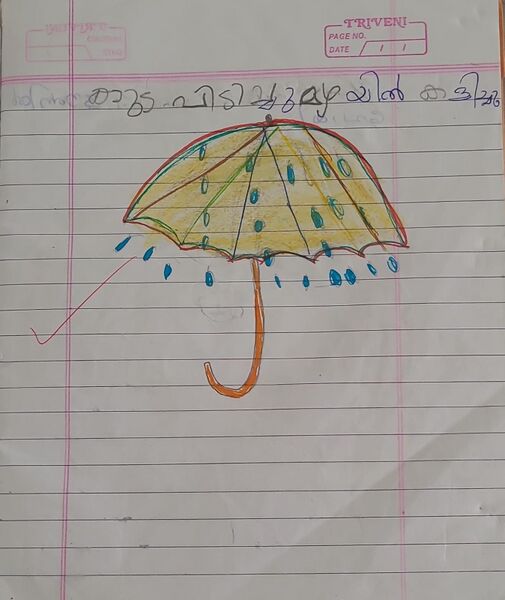 TRIVENI
PAGE NO.
DATE / /
കുട പിടിച്ചു മഴയിൽ കളിച്ചു